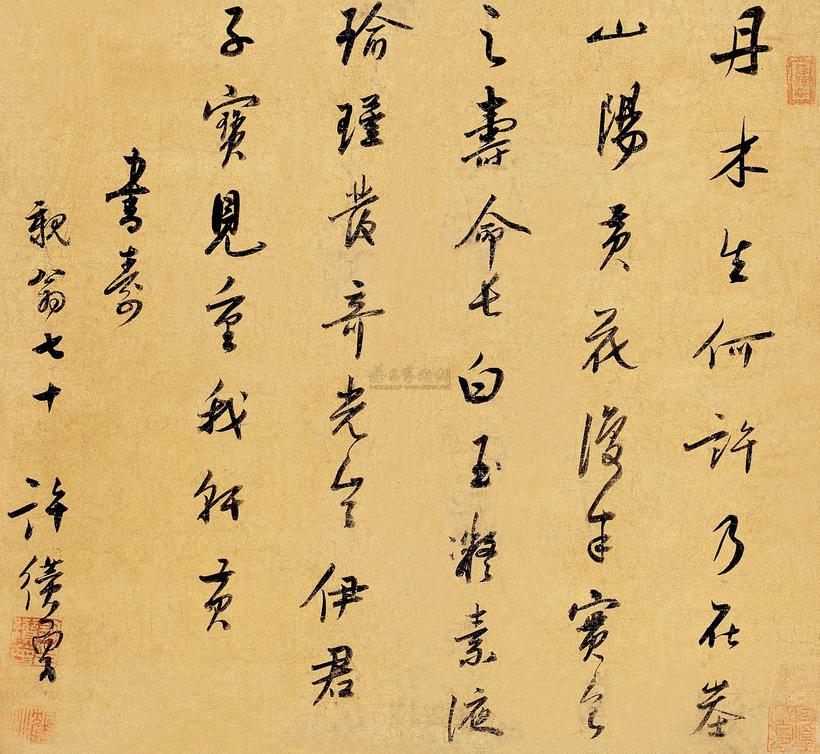 丹木生何許乃在峚
山陽黃花復朱實食
之壽命長白玉凝素液
瑜瑾發奇光豈伊君
子寶見重我軒黃
書壽
親翁七十 許纘曾